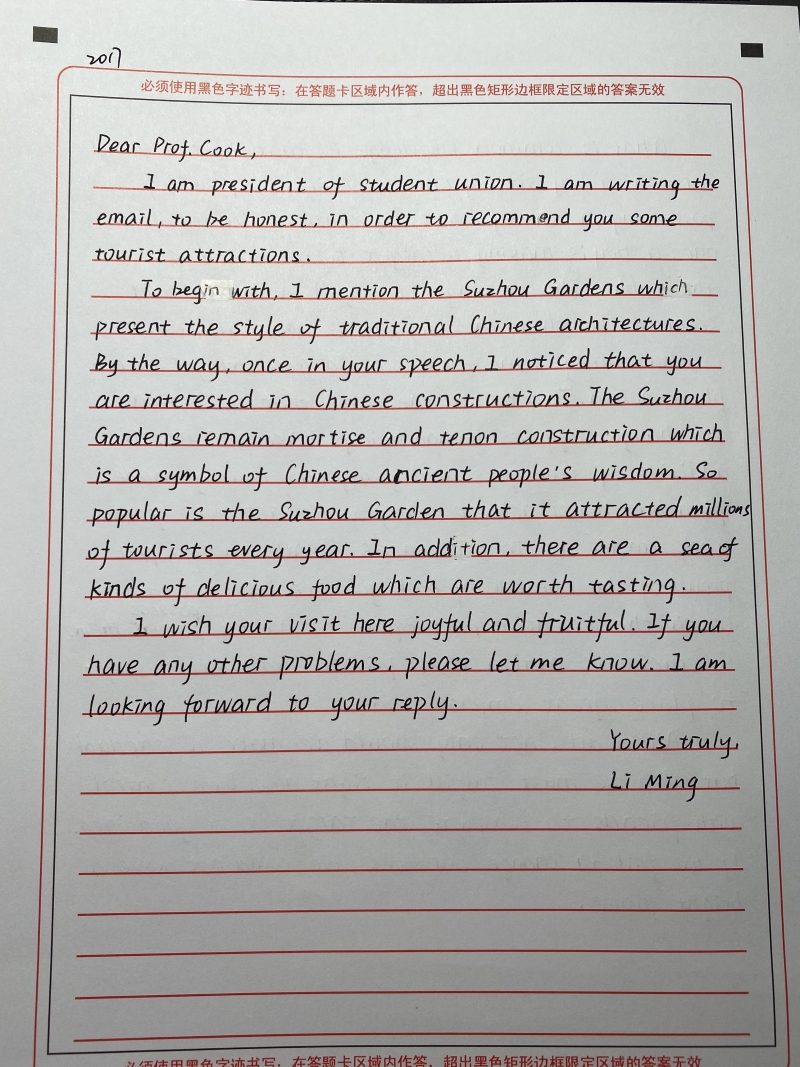 2017
必须使用黑色字迹书写：在答题卡区域内作答，超出黑色矩形边框限定区域的答案无效
Dear Prof. Cook,
I am president of student union. I am writing the
email, to be honest, in order to recommend you some
tourist attractions.
To begin with, I mention the Suzhou Gardens which
present the style of traditional Chinese architectures.
By the way, once in your speech, I noticed that you
are interested in Chinese constructions. The Suzhou
Gardens remain mortise and tenon construction which
is a symbol of Chinese ancient people's wisdom. So
popular is the Suzhou Garden that it attracted millions
of tourists every year. In addition, there are a sea of
kinds of delicious food which are worth tasting.
I wish your visit here joyful and fruitful. If you
have any other problems, please let me know. I am
looking forward to your reply.
Yours truly,
Li Ming
必须使用黑色字迹书写：在答题卡区域内作答，超出黑色矩形边框限定区域的答案无效